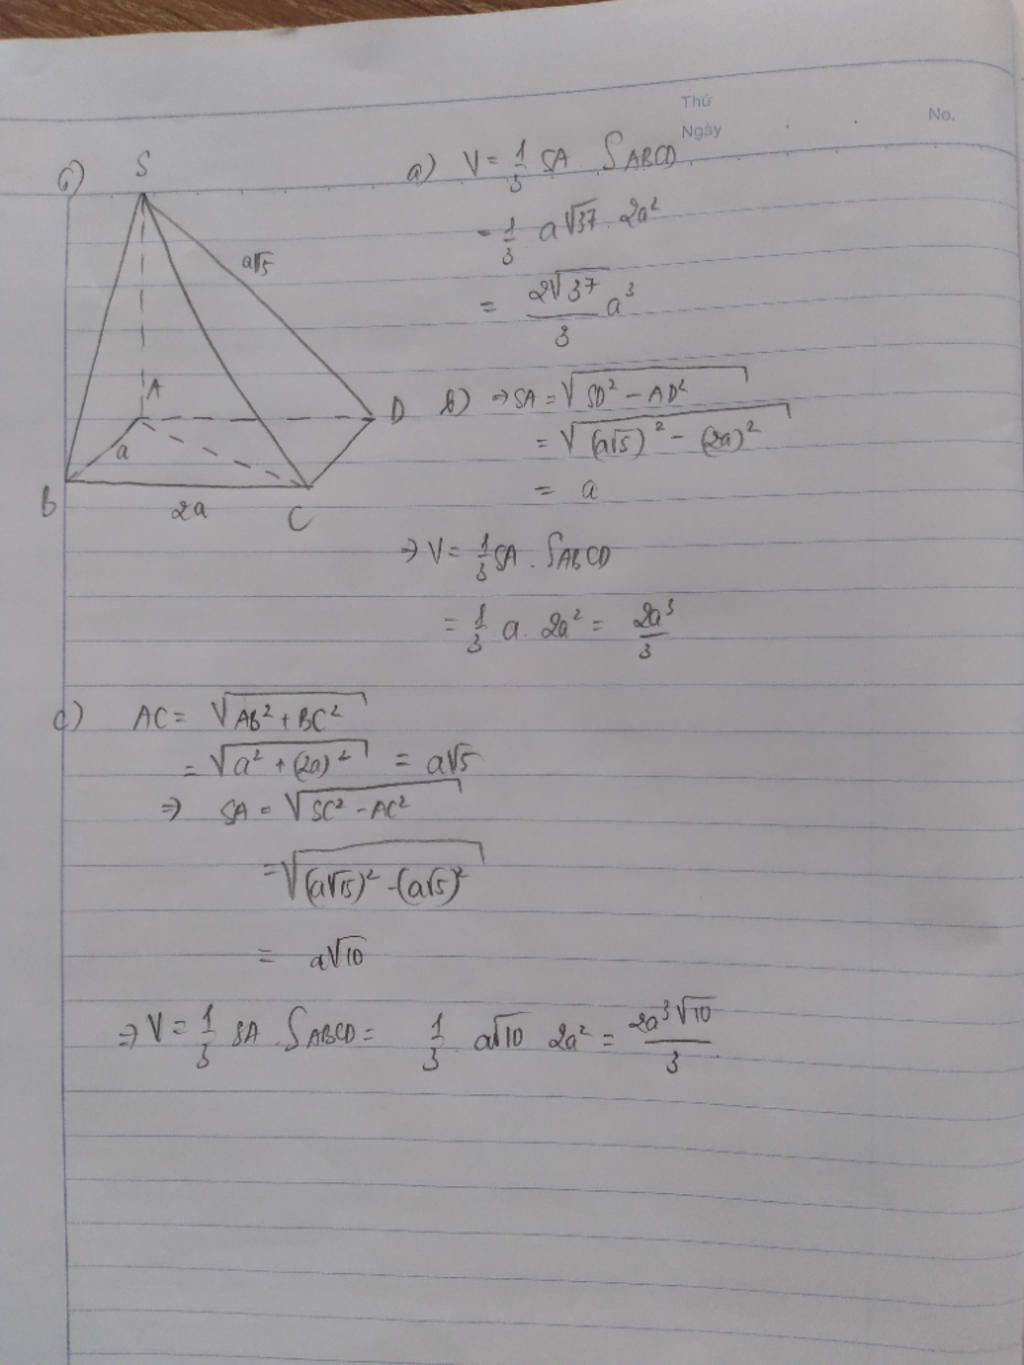 Thứ
Ngày
No.
6)
S
a√5
A
D
a
B
2a
C
a) V = 1/3 SA . S_ABCD
= 1/3 a√37 . 2a²
= 2√37/3 a³
b) ⇒ SA = √(SD² - AD²)
= √((a√5)² - (2a)²)
= a
⇒ V = 1/3 SA . S_ABCD
= 1/3 a . 2a² = 2a³/3
c) AC = √(AB² + BC²)
= √(a² + (2a)²) = a√5
⇒ SA = √(SC² - AC²)
= √((a√15)² - (a√5)²)
= a√10
⇒ V = 1/3 SA . S_ABCD = 1/3 a√10 2a² = 2a³√10/3